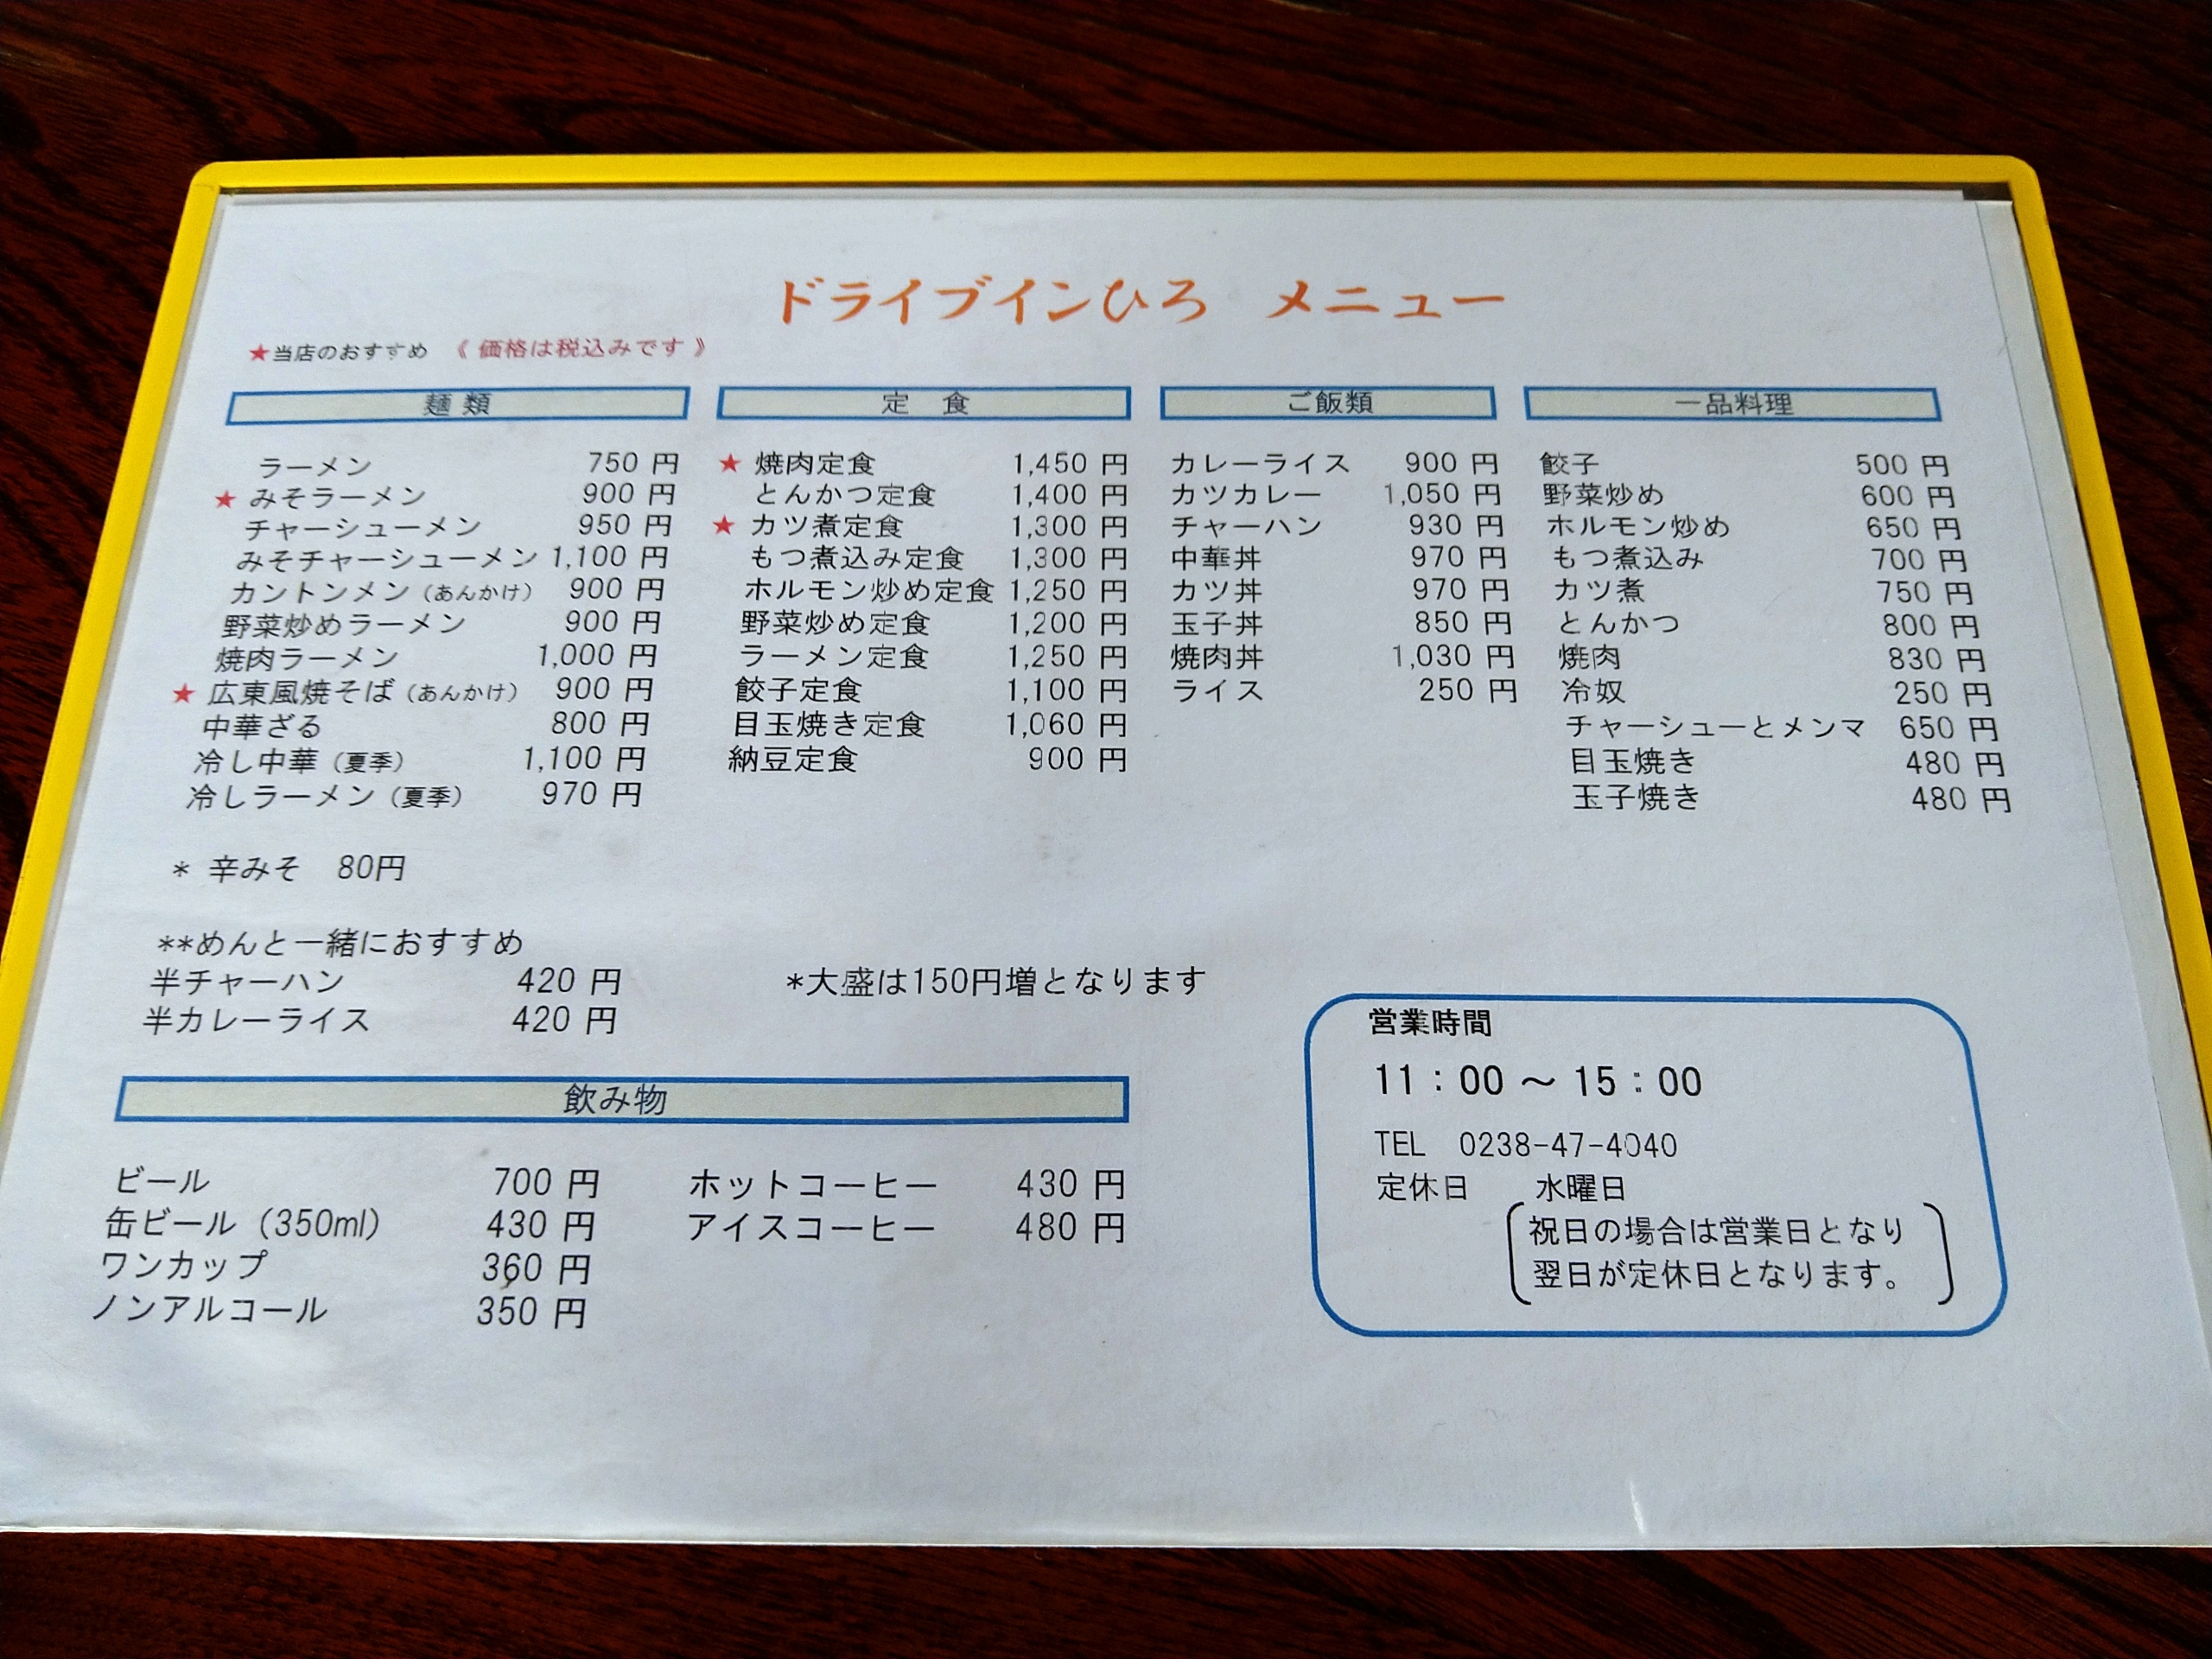 ドライブインひろ　メニュー
★当店のおすすめ 《 価格は税込みです 》
麺 類
ラーメン 750 円
★ みそラーメン 900 円
チャーシューメン 950 円
みそチャーシューメン 1,100 円
カントンメン（あんかけ） 900 円
野菜炒めラーメン 900 円
焼肉ラーメン 1,000 円
★ 広東風焼そば（あんかけ） 900 円
中華ざる 800 円
冷し中華（夏季） 1,100 円
冷しラーメン（夏季） 970 円
* 辛みそ　80円
**めんと一緒におすすめ
半チャーハン 420 円
半カレーライス 420 円
定　食
★ 焼肉定食 1,450 円
とんかつ定食 1,400 円
★ カツ煮定食 1,300 円
もつ煮込み定食 1,300 円
ホルモン炒め定食 1,250 円
野菜炒め定食 1,200 円
ラーメン定食 1,250 円
餃子定食 1,100 円
目玉焼き定食 1,060 円
納豆定食 900 円
ご飯類
カレーライス 900 円
カツカレー 1,050 円
チャーハン 930 円
中華丼 970 円
カツ丼 970 円
玉子丼 850 円
焼肉丼 1,030 円
ライス 250 円
一品料理
餃子 500 円
野菜炒め 600 円
ホルモン炒め 650 円
もつ煮込み 700 円
カツ煮 750 円
とんかつ 800 円
焼肉 830 円
冷奴 250 円
チャーシューとメンマ 650 円
目玉焼き 480 円
玉子焼き 480 円
*大盛は150円増となります
飲み物
ビール 700 円
缶ビール（350ml） 430 円
ワンカップ 360 円
ノンアルコール 350 円
ホットコーヒー 430 円
アイスコーヒー 480 円
営業時間
11：00 ～ 15：00
TEL　0238-47-4040
定休日　　水曜日
祝日の場合は営業日となり
翌日が定休日となります。